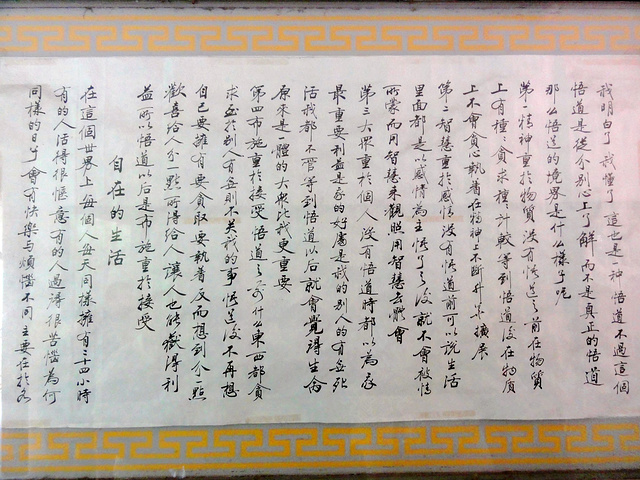 我明白了我懂了這也是一种悟道不過這個
悟道是從分別心上了解而不是真正的悟道
那么悟道的境界是什么樣子呢
第一精神重於物質沒有悟道之前在物質
上有種種貪求種種計較等到悟道後在物質
上不會貪心執着在精神上不断升華擴展
第二智慧重於感情沒有悟道前可以說生活
里面都是以感情為主悟了之後就不會被情
所蒙而用智慧來觀照用智慧去體會
第三大眾重於個人沒有悟道時都以為我
最重要利益是我的好處是我的別人的有無死
活我都不管等到悟道以后就會覺得生命
原來是一體的大眾比我更重要
第四布施重於接受悟道之前什么東西都貪
求至於別人有無則不关我的事悟道後不再想
自己要擁有要貪取要執着反而想到分一點
歡喜給人分一點所得給人讓人也能獲得利
益所以悟道以后是布施重於接受
自在的生活
在這個世界上每個人每天同樣擁有二十四小時
有的人活得很愜意有的人過得很苦惱為何
同樣的日子會有快樂与煩惱不同主要在於各